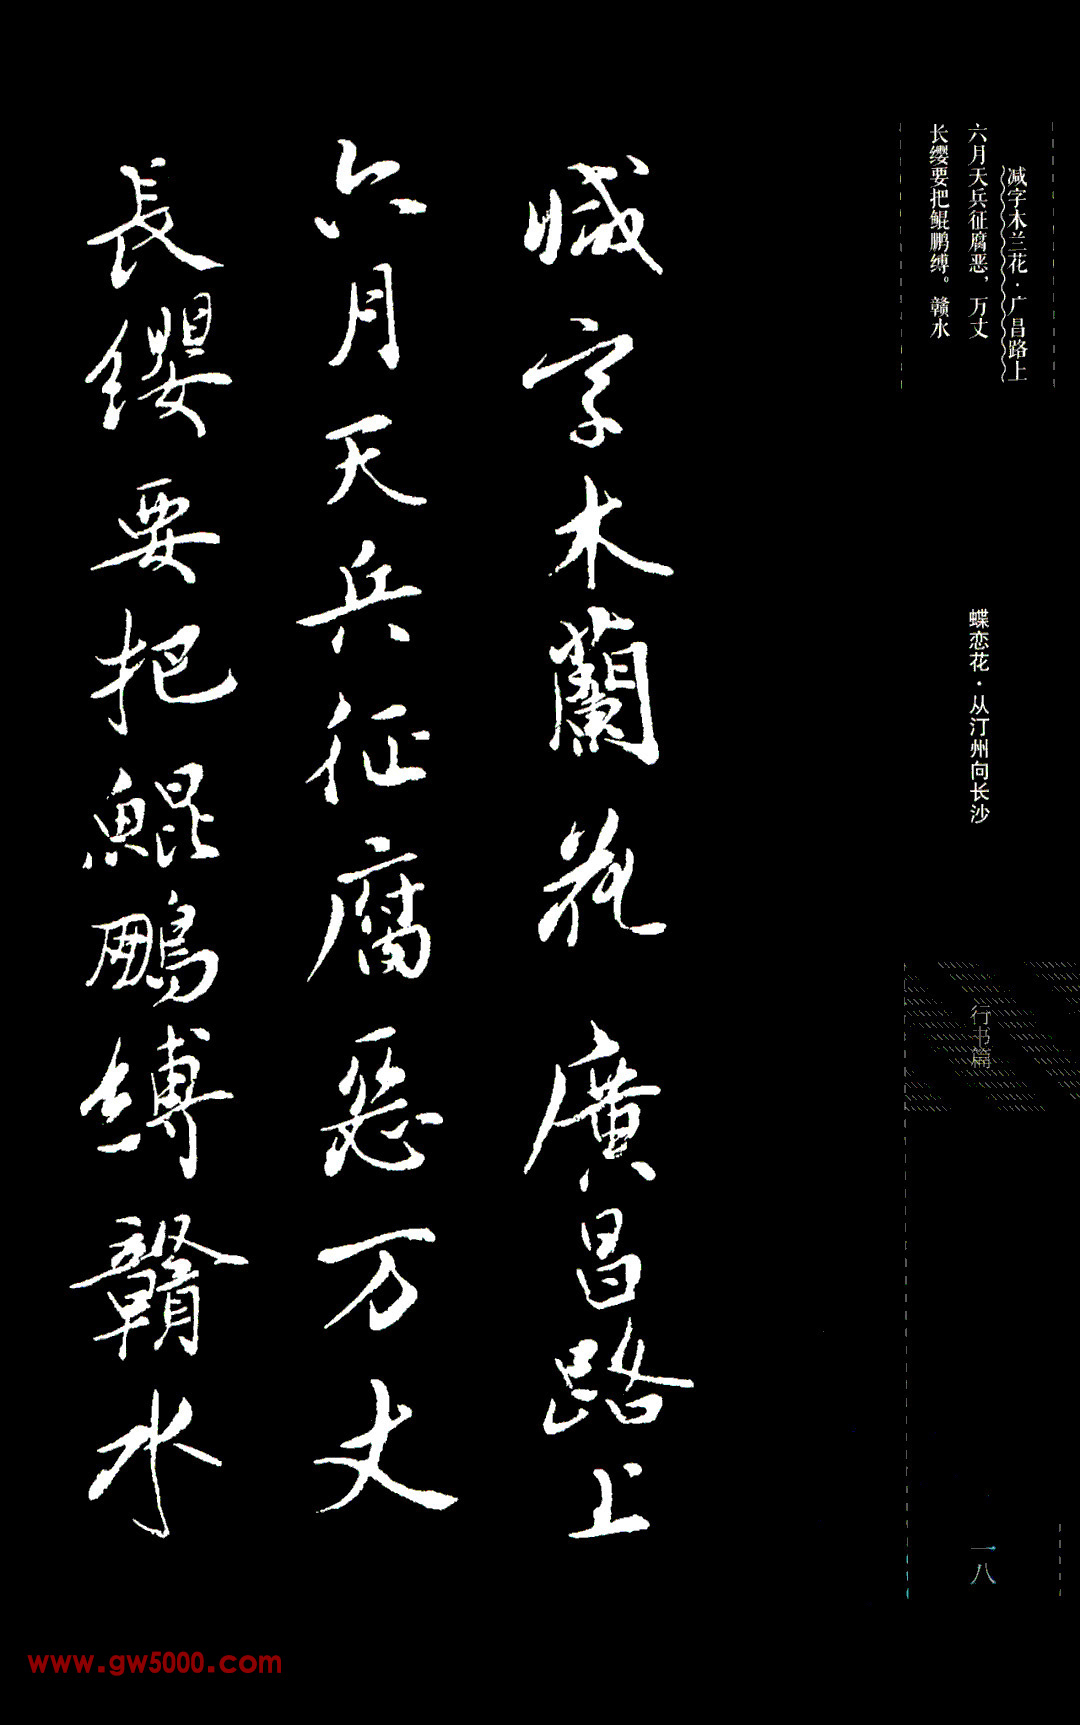 减字木兰花·广昌路上
六月天兵征腐恶，万丈
长缨要把鲲鹏缚。赣水
蝶恋花·从汀州向长沙
行书篇
一八
减字木蘭花 廣昌路上
六月天兵征腐惡万丈
長纓要把鯤鵬縛贛水
www.gw5000.com